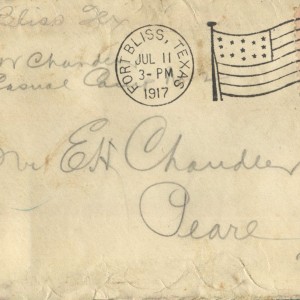 Bliss Tex
W Chandler
Casual Ca
FORT BLISS, TEXAS
JUL 11
3-PM
1917
Mr EH Chandler
Peare